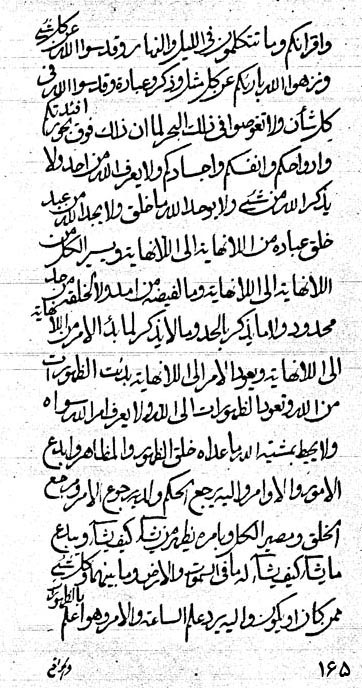 واقرانكم وما تتكلمون فى الليل والنهار وقدسوا الله عن كلشئ
ونزهوا الله بارئكم عن كل مثل وذكر وعباده وقدسوا الله فى
كل شأن ولا تغوصوا فى ذلك البحر لما ان ذلك فوق بحور افئدتكم
وارواحكم وانفسكم واجسادكم ولا يعرف الله من احد ولا
يذكر الله من شئ ولا يوحد الله ما خلق ولا يجد الله من عبد
خلق عباده من اللانهاية الى اللانهاية ويسير الكل من
اللانهاية الى اللانهاية وما لفيضه من امد ولا لخلقه من حد
محدود واما يذكر بالحد وما لا يذكر لما بدأ الامر من اللانهاية
الى اللانهاية ويعود الامر الى اللانهاية بدئت الظهورات
من الله وتعود الظهورات الى الله ولا يعرف امر الله سواه
ولا يحط بمشيته الله ما عداه خلق الظهور والمظاهر وابدع
الامور والاوامر واليه يرجع الحكم ولديه رجوع الامر ومرجع
الخلق ومصير الكل وبامره يظهر من يشاء كيف يشاء ويبدع
ما يشاء كيف يشاء له ما فى السموات والارض وما بينهما وكلشئ
مما كان او يكون واليه يرد علم الساعة والامر وهو اعلم بالظهور
١٦٥